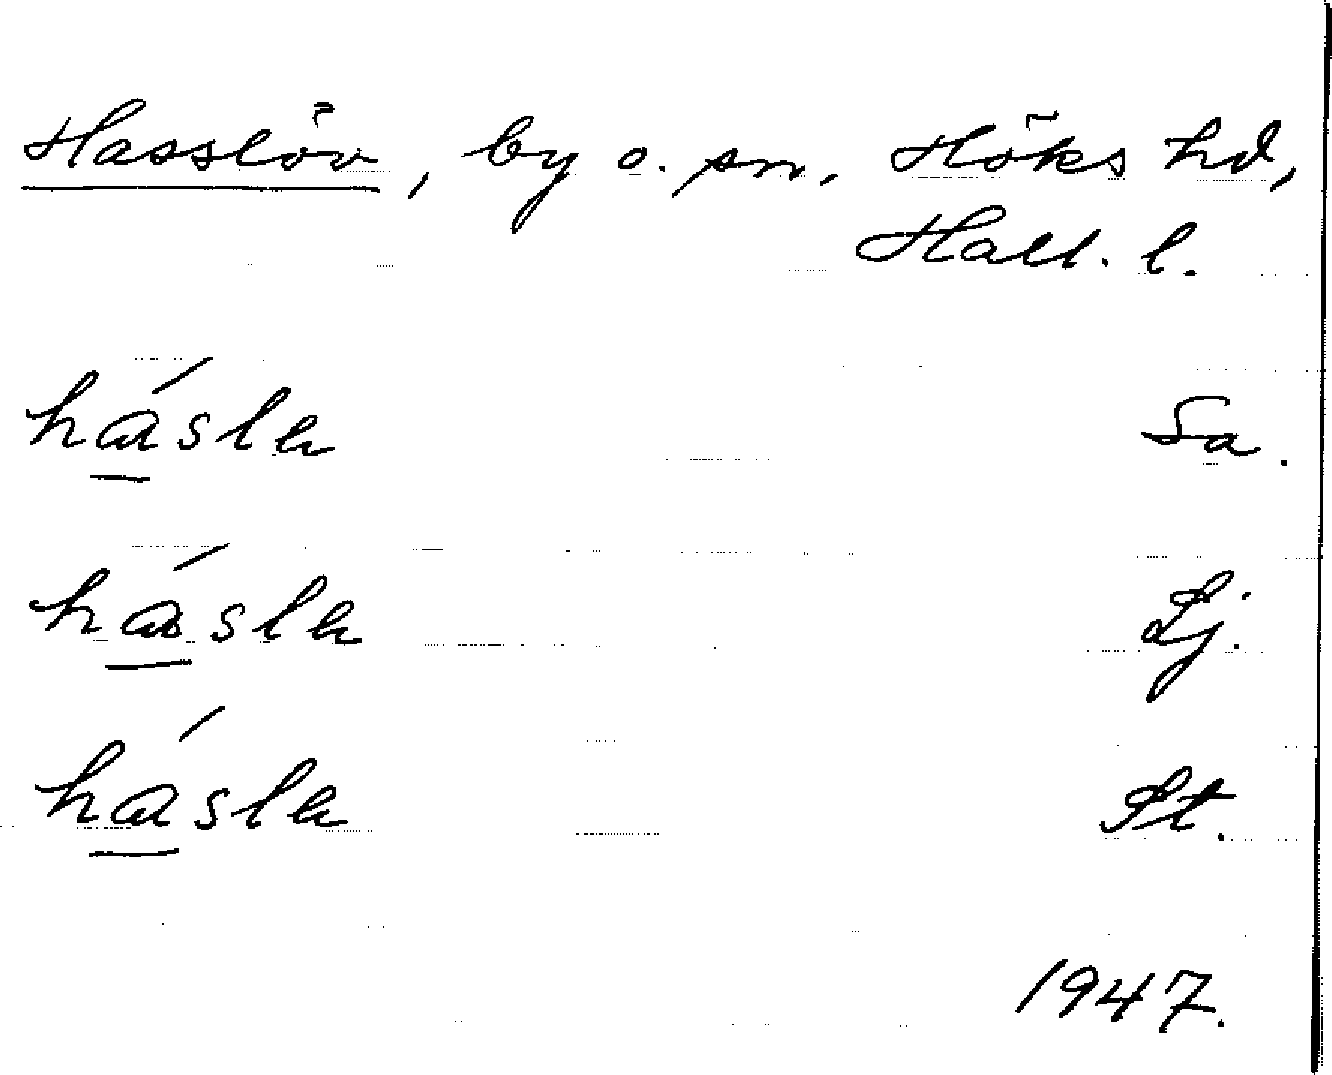 Hasslöv, by o. sn, Höks hd,
Hall. l.
hásla Sa.
hásla Lj.
hásla St.
1947.